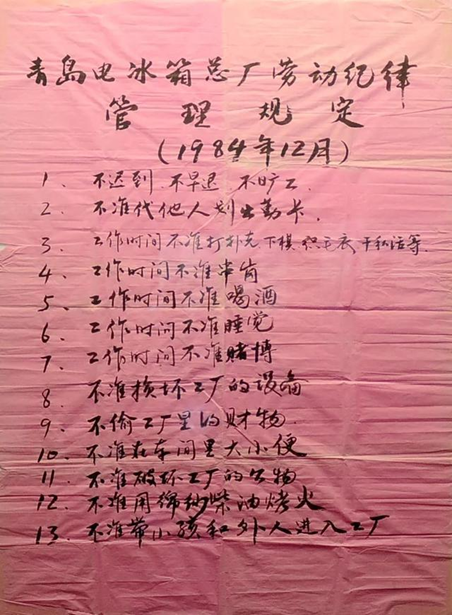 青岛电冰箱总厂劳动纪律
管理规定
(1984年12月)
1、不迟到 不早退 不旷工.
2、不准代他人划出勤卡.
3、工作时间不准打扑克、下棋、织毛衣、干私活等.
4、工作时间不准串岗
5、工作时间不准喝酒
6、工作时间不准睡觉
7、工作时间不准赌博
8、不准损坏工厂的设备
9、不偷工厂里的财物.
10、不准在车间里大小便
11、不准破坏工厂的公物
12、不准用棉纱柴油烤火
13、不准带小孩和外人进入工厂